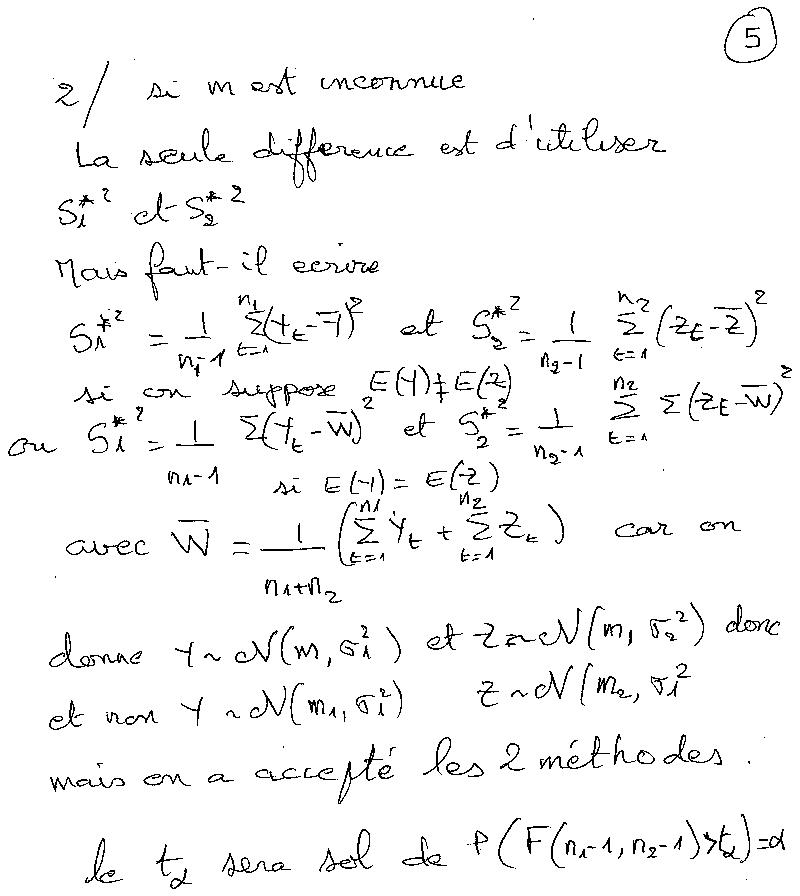 5
2/ si m est inconnue
La seule difference est d'utiliser
S₁*² et S₂*²
Mais faut-il ecrire
S₁*² = 1/(n₁-1) Σ_{t=1}^{n₁} (Y_t - Y̅)² et S₂*² = 1/(n₂-1) Σ_{t=1}^{n₂} (Z_t - Z̅)²
si on suppose E(Y) ≠ E(Z)
ou S₁*² = 1/(n₁-1) Σ(Y_t - W̅)² et S₂*² = 1/(n₂-1) Σ_{t=1}^{n₂} Σ(Z_t - W̅)²
si E(Y) = E(Z)
avec W̅ = 1/(n₁+n₂) (Σ_{t=1}^{n₁} Y_t + Σ_{t=1}^{n₂} Z_t) car on
donne Y ~ N(m, σ₁²) et Z ~ N(m, σ₂²) donc
et non Y ~ N(m₁, σ₁²) Z ~ N(m₂, σ₁²
mais on a accepté les 2 méthodes.
le t_α sera sol de P(F(n₁-1, n₂-1) > t_α) = α